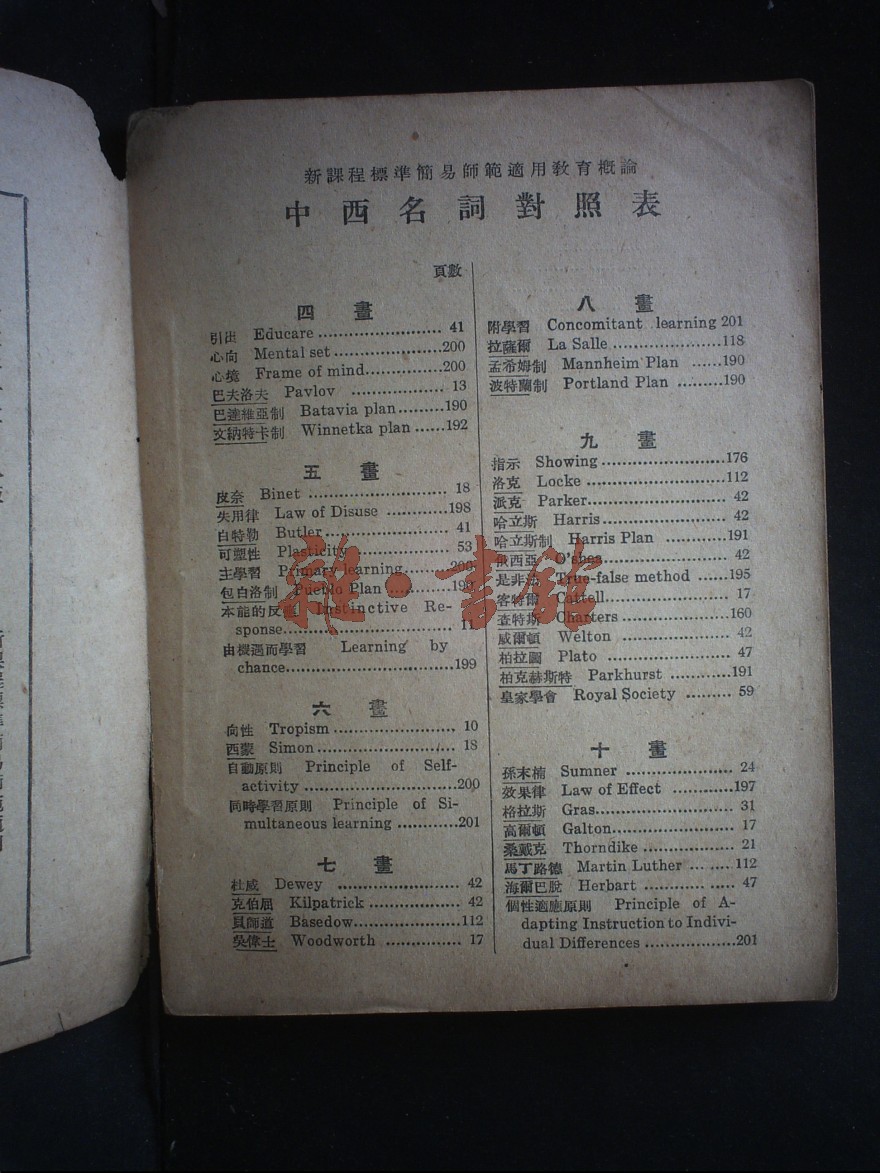 新課程標準簡易師範適用教育概論
中西名詞對照表
頁數
四畫
引出 Educare 41
心向 Mental set 200
心境 Frame of mind 200
巴夫洛夫 Pavlov 13
巴達維亞制 Batavia plan 190
文納特卡制 Winnetka plan 192
五畫
皮奈 Binet 18
失用律 Law of Disuse 198
白特勒 Butler 41
可塑性 Plasticity 53
主學習 Primary learning 200
包白洛制 Pueblo Plan
本能的反應 Instinctive Re-
sponse 11
由機遇而學習 Learning by
chance 199
六畫
向性 Tropism 10
西蒙 Simon 18
自動原則 Principle of Self-
activity 200
同時學習原則 Principle of Si-
multaneous learning 201
七畫
杜威 Dewey 42
克伯屈 Kilpatrick 42
貝師道 Basedow 112
吳偉士 Woodworth 17
八畫
附學習 Concomitant learning 201
拉薩爾 La Salle 118
孟希姆制 Mannheim Plan 190
波特蘭制 Portland Plan 190
九畫
指示 Showing 176
洛克 Locke 112
派克 Parker 42
哈立斯 Harris 42
哈立斯制 Harris Plan 191
俄西亞 O'shea 42
是非法 True-false method 195
客特爾 Cattell 17
查特斯 Charters 160
威爾頓 Welton 42
柏拉圖 Plato 47
柏克赫斯特 Parkhurst 191
皇家學會 Royal Society 59
十畫
孫末楠 Sumner 24
效果律 Law of Effect 197
格拉斯 Gras 31
高爾頓 Galton 17
桑戴克 Thorndike 21
馬丁路德 Martin Luther 112
海爾巴脫 Herbart 47
個性適應原則 Principle of A-
dapting Instruction to Indivi-
dual Differences 201
雜·書館